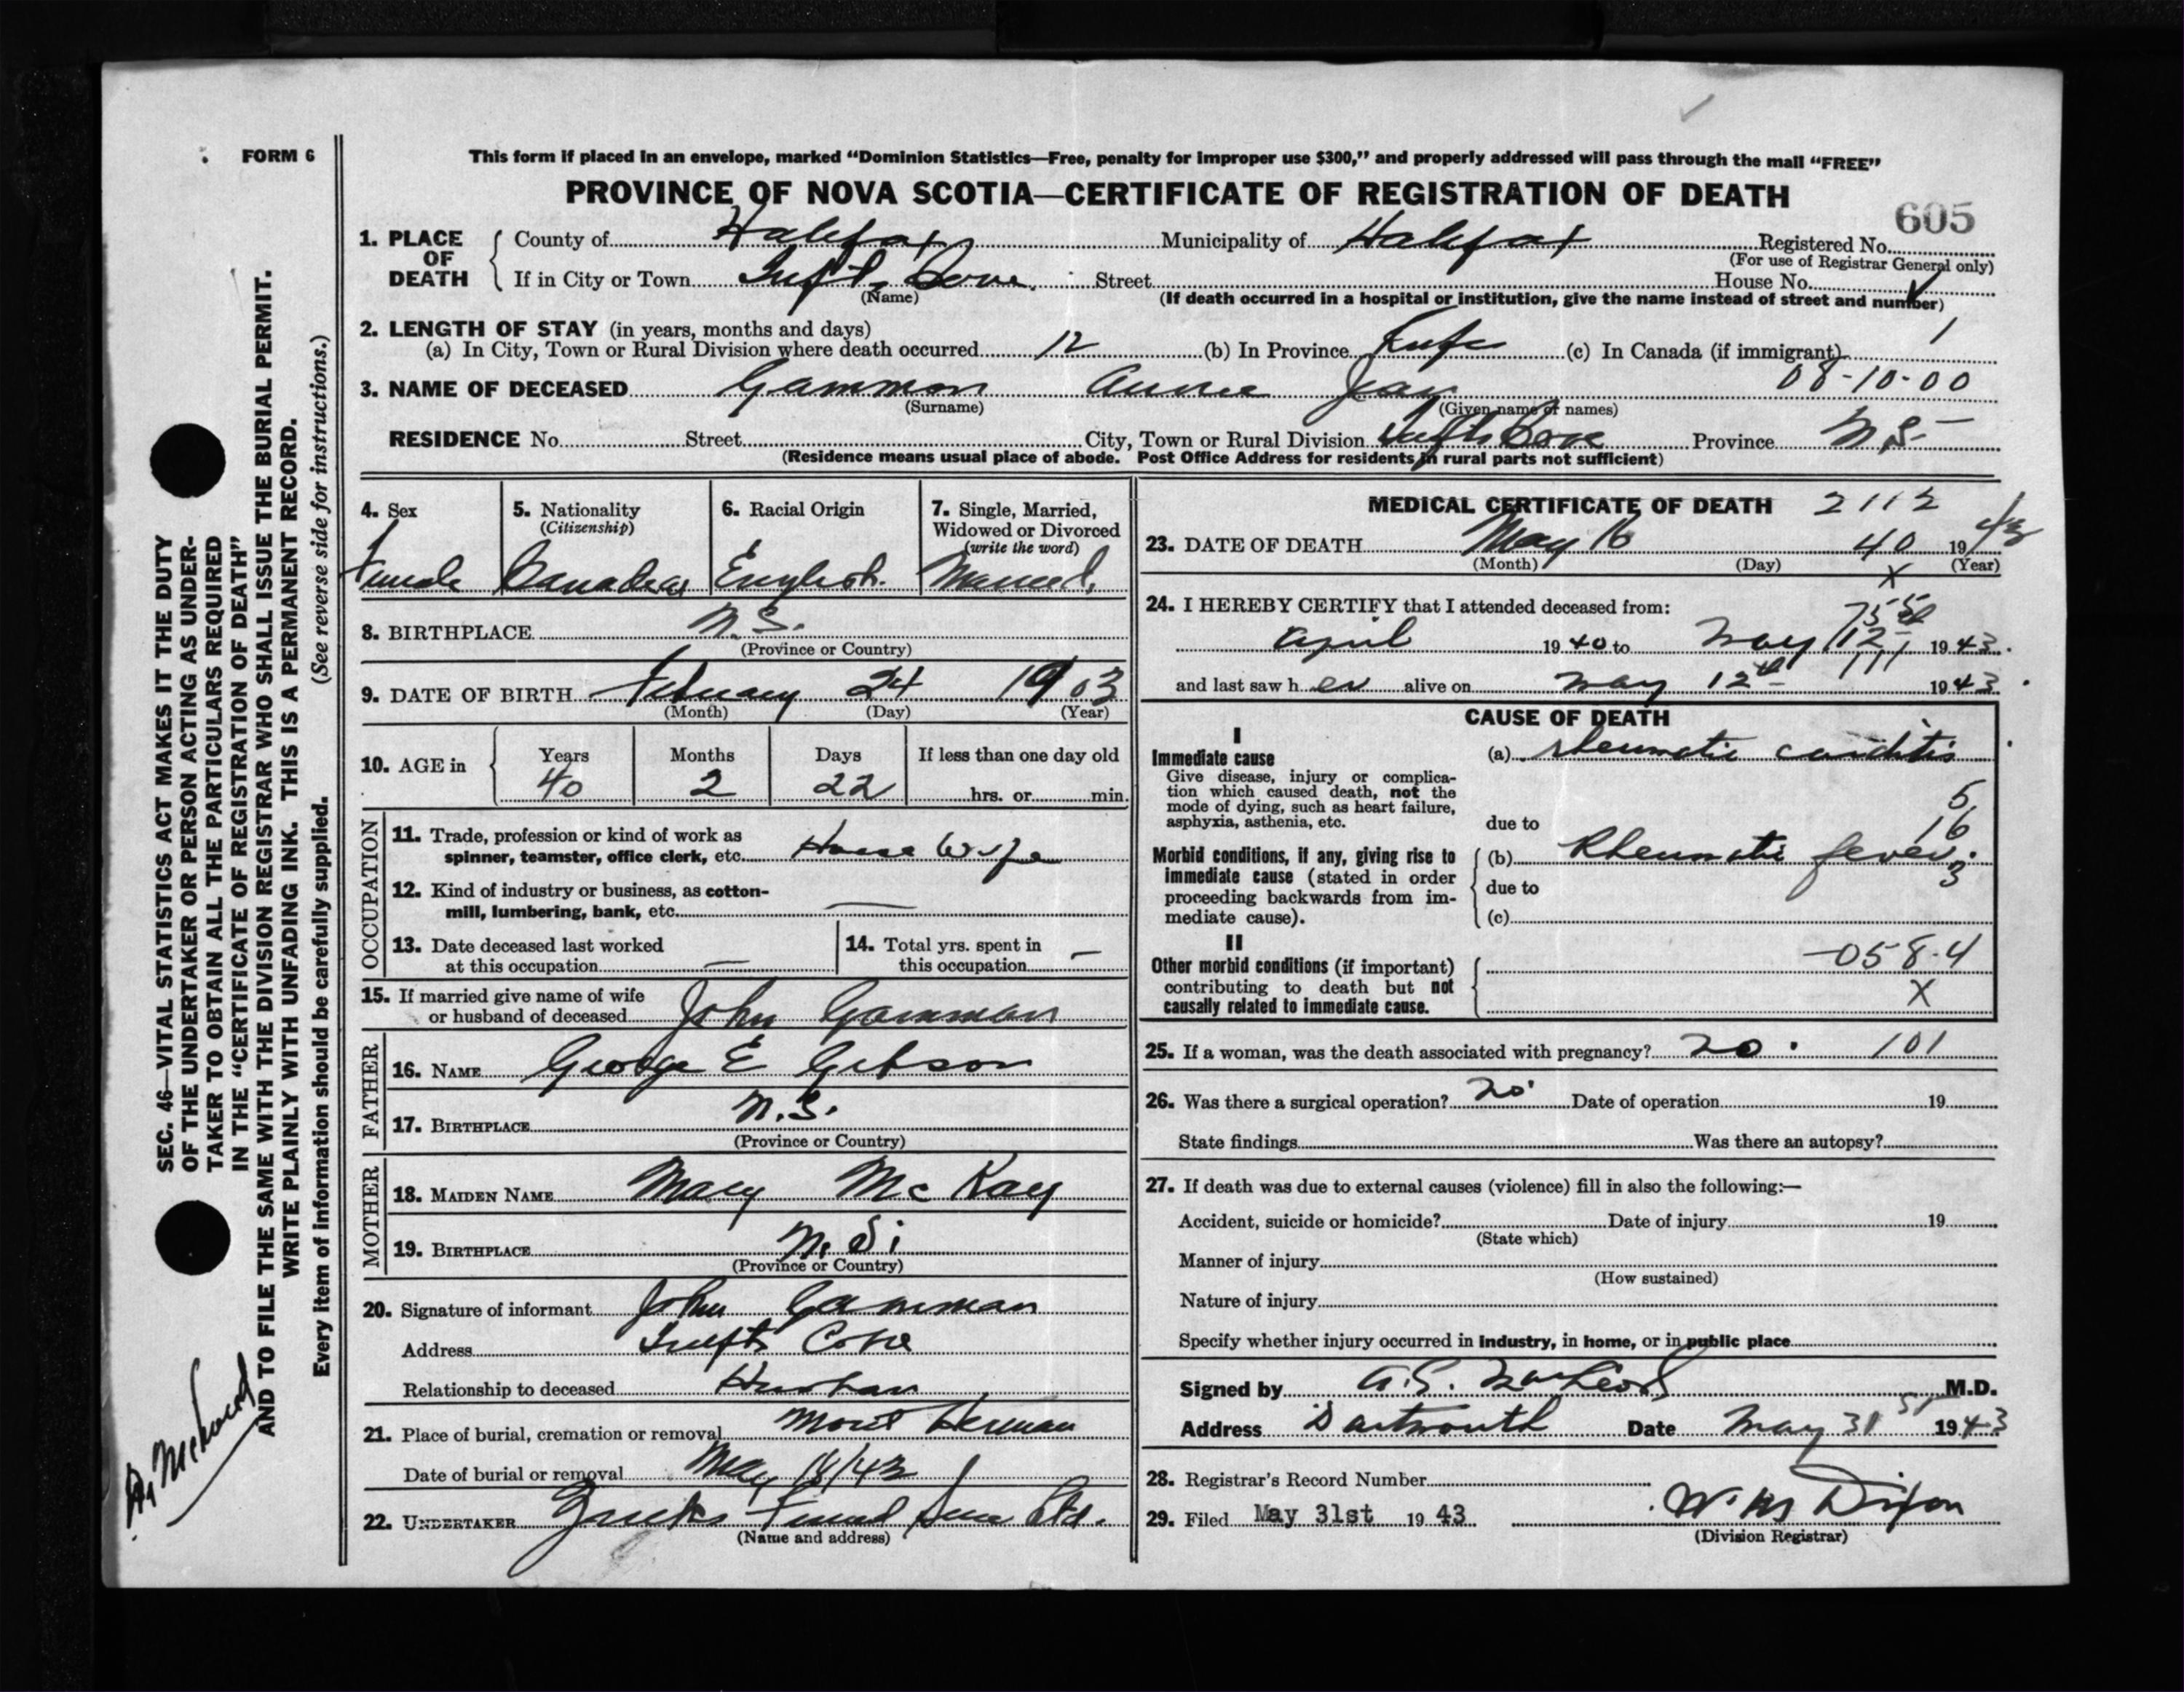 FORM 6
This form if placed in an envelope, marked “Dominion Statistics—Free, penalty for improper use $300,” and properly addressed will pass through the mail “FREE”
PROVINCE OF NOVA SCOTIA—CERTIFICATE OF REGISTRATION OF DEATH
605
1. PLACE OF DEATH { County of Halifax Municipality of Halifax Registered No.
(For use of Registrar General only)
If in City or Town Tufts Cove. Street House No.
(Name) (If death occurred in a hospital or institution, give the name instead of street and number)
2. LENGTH OF STAY (in years, months and days) 1
(a) In City, Town or Rural Division where death occurred 12 (b) In Province Life (c) In Canada (if immigrant)
08-10-00
3. NAME OF DECEASED Gammon Annie Jean
(Surname) (Given name or names)
RESIDENCE No. Street City, Town or Rural Division Tufts Cove Province N.S.
(Residence means usual place of abode. Post Office Address for residents in rural parts not sufficient)
4. Sex
Female
5. Nationality
(Citizenship)
Canadian
6. Racial Origin
English.
7. Single, Married,
Widowed or Divorced
(write the word)
Married.
8. BIRTHPLACE N.S.
(Province or Country)
9. DATE OF BIRTH February 24 1903
(Month) (Day) (Year)
10. AGE in { Years Months Days If less than one day old
40 2 22 hrs. or min.
OCCUPATION
11. Trade, profession or kind of work as
spinner, teamster, office clerk, etc. House Wife
12. Kind of industry or business, as cotton-
mill, lumbering, bank, etc. —
13. Date deceased last worked
at this occupation —
14. Total yrs. spent in
this occupation —
15. If married give name of wife
or husband of deceased John Gamman
FATHER
16. NAME George E Gibson
17. BIRTHPLACE N.S.
(Province or Country)
MOTHER
18. MAIDEN NAME Mary McKay
19. BIRTHPLACE N.S.
(Province or Country)
20. Signature of informant John Gamman
Address Tufts Cove
Relationship to deceased Husban
21. Place of burial, cremation or removal Mount Herman
Date of burial or removal May 18/43
22. UNDERTAKER Funeral Ltd.
(Name and address)
MEDICAL CERTIFICATE OF DEATH 2112
23. DATE OF DEATH May 16 40 1943
(Month) (Day) (Year)
X
24. I HEREBY CERTIFY that I attended deceased from:
April 1940 to May 12 1943.
and last saw her alive on May 12th 1943.
CAUSE OF DEATH
I
Immediate cause
Give disease, injury or complica-
tion which caused death, not the
mode of dying, such as heart failure,
asphyxia, asthenia, etc.
(a) rheumatic carditis
due to
Morbid conditions, if any, giving rise to
immediate cause (stated in order
proceeding backwards from im-
mediate cause).
(b) Rheumatic fever.
due to
(c)
5
16
3
II
Other morbid conditions (if important)
contributing to death but not
causally related to immediate cause.
-058-4
X
25. If a woman, was the death associated with pregnancy? no. 101
26. Was there a surgical operation? no Date of operation 19
State findings Was there an autopsy?
27. If death was due to external causes (violence) fill in also the following:—
Accident, suicide or homicide? Date of injury 19
(State which)
Manner of injury
(How sustained)
Nature of injury
Specify whether injury occurred in industry, in home, or in public place
Signed by MacLeod M.D.
Address Dartmouth Date May 31st 1943
28. Registrar's Record Number
29. Filed May 31st 1943 Dixon
(Division Registrar)
SEC. 46—VITAL STATISTICS ACT MAKES IT THE DUTY
OF THE UNDERTAKER OR PERSON ACTING AS UNDER-
TAKER TO OBTAIN ALL THE PARTICULARS REQUIRED
IN THE “CERTIFICATE OF REGISTRATION OF DEATH”
AND TO FILE THE SAME WITH THE DIVISION REGISTRAR WHO SHALL ISSUE THE BURIAL PERMIT.
WRITE PLAINLY WITH UNFADING INK. THIS IS A PERMANENT RECORD.
Every item of information should be carefully supplied. (See reverse side for instructions.)